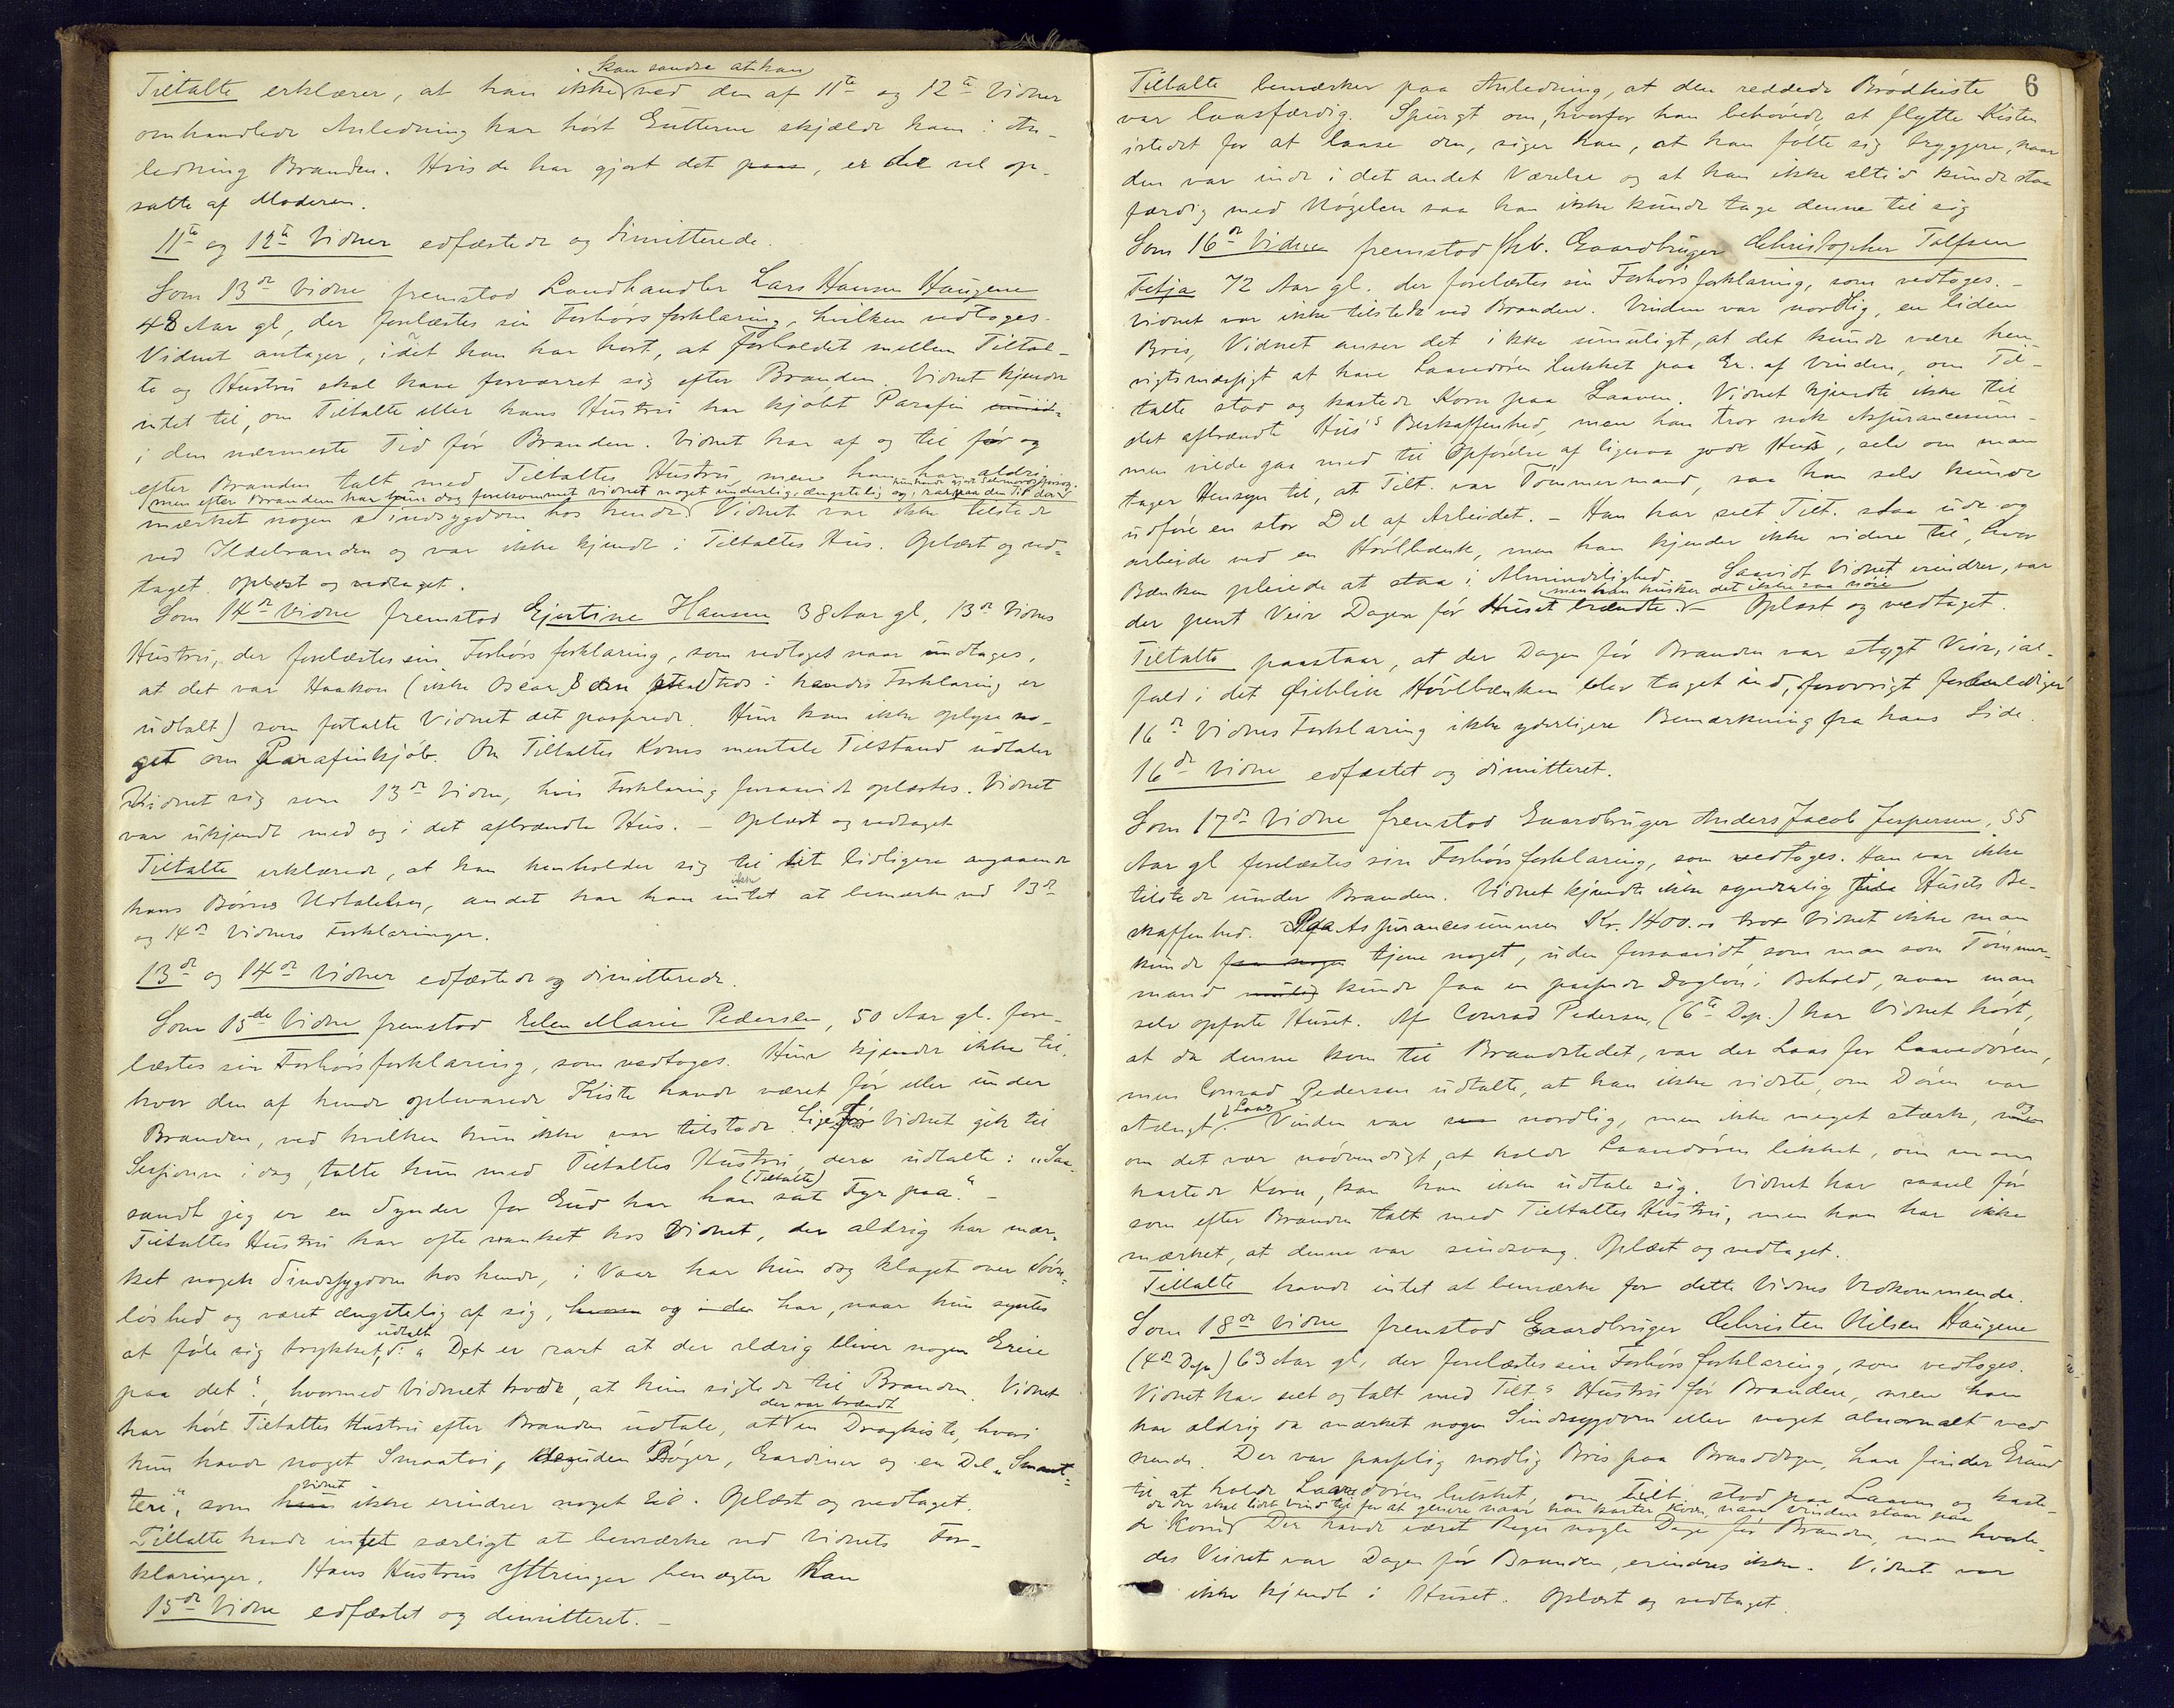 kan sandse at han
Tiltalte erklærer, at han ikke ved den af 11te og 12te Vidner
omhandlede Anledning har hørt Gutterne skjælde ham i An-
ledning Branden. Hvis de har gjort det paa, er det vel op-
satte af Moderen.
11te og 12te Vidner edfæstede og dimitterede.
Som 13de Vidne fremstod Landhandler Lars Hansen Haugene
48 Aar gl, der forelæstes sin Forhørsforklaring, hvilken vedtoges.
Vidnet antager, idet han har hørt, at Forholdet mellem Tiltal-
te og Hustru skal have forværret sig efter Branden. Vidnet kjender
intet til, om Tiltalte eller hans Hustru har kjøbt Parafin
i den nærmeste Tid før Branden. Vidnet har af og til før og
efter Branden talt med Tiltaltes Hustru men han har aldrig
men efter Branden har hun dog forekommet vidnet noget underlig, ængstelig og rar paa den Tid da
mærket nogen sindsygdom hos hende. Vidnet var ikke tilstede
ved Ildebranden og var ikke kjendt i Tiltaltes Hus. Oplæst og ved-
taget. Oplæst og vedtaget.
Som 14de Vidne fremstod Gjertine Hansen 38 Aar gl, 13de Vidnes
Hustru, der forelæstes sin Forhørsforklaring, som vedtoges naar undtages,
at det var Haakon (ikke Oscar, som i hendes Forklaring er
udtalt) som fortalte Vidnet det passerede. Hun kan ikke oplyse no-
get om Parafinkjøb. Om Tiltaltes Kones mentale Tilstand udtaler
Vidnet sig som 13de Vidne, hvis Forklaring forsaavidt oplæstes. Vidnet
var ukjendt med og i det afbrændte Hus. – Oplæst og vedtaget
Tiltalte erklærede, at han henholder sig til sit tidligere angaaende
ikke
hans Børns Udtalelser, andet har han intet at bemærke ved 13de
og 14de Vidners Forklaringer.
13de og 14de Vidner edfæstede og dimitterede.
Som 15de Vidne fremstod Ellen Marie Pedersen, 50 Aar gl. fore-
læstes sin Forhørsforklaring, som vedtoges. Hun kjender ikke til,
hvor den af hende opbevarede Kiste havde været før eller under
Branden, ved hvilken hun ikke var tilstede. Lige før Vidnet gik til
Sessionen i dag, talte hun med Tiltaltes Hustru, der udtalte: "Saa-
(Tiltalte)
sandt jeg er en Synder for Gud har han sat Fyr paa." –
Tiltaltes Hustru har ofte vanket hos Vidnet, der aldrig har mær-
ket nogen Sindssygdom hos hende, i Vaar har hun dog klaget over Søvn-
løshed og været ængstelig af sig, og har, naar hun syntes
udtalt
at føle sig trykket, "Det er rart at der aldrig bliver nogen Greie
paa det", hvormed Vidnet troede, at hun sigtede til Branden. Vidnet
der var brændt
har hørt Tiltaltes Hustru efter Branden udtale, at en Dragkiste, hvori
hun havde noget Smaatøi, desuden Bøger, Gardiner og en Del "Smaat-
vidnet
teri", som hun ikke erindrer noget til. Oplæst og vedtaget.
Tiltalte havde intet særligt at bemærke ved Vidnets For-
klaringer. Hans Hustrus Yttringer benægter han
15de Vidne edfæstet og dimitteret. –
6
Tiltalte bemærker paa Anledning, at den reddede Brødkiste
var laasfærdig. Spurgt om, hvorfor han behøvede at flytte Kisten
istedet for at laase den, siger han, at han følte sig tryggere, naar
den var inde i det andet Værelse og at han ikke altid kunde staa
færdig med Nøgelen saa han ikke kunde tage denne til sig
Som 16de Vidne fremstod fhv. Gaardbruger Christopher Tolfsen
Fetja 72 Aar gl. der forelæstes sin Forhørsforklaring, som vedtoges. –
Vidnet var ikke tilstede ved Branden. Vinden var nordlig, en liden
Bris, Vidnet anser det ikke umuligt, at det kunde være hen-
sigtsmæssigt at have Laavedøren lukket paa Gr. af vinden, om Til-
talte stod og kastede Korn paa Laaven. Vidnet kjendte ikke til
det afbrændte Hus's Beskaffenhed, men han tror nok Assurancesum-
men vilde gaa med til Opførelse af ligesaa gode Hus, selv om man
tager Hensyn til, at Tilt. var Tømmermand, saa han selv kunde
udføre en stor Del af Arbeidet. – Han har seet Tilt. staa ude og
arbeide ved en Høvlbænk, men han kjender ikke videre til, hvor
Bænken pleiede at staa i Almindelighed. Saavidt Vidnet erindrer, var
men han husker det ikke saa nøie
der pent Veir Dagen før Huset brændte. – Oplæst og vedtaget.
Tiltalte paastaar, at der Dagen før Branden var stygt Veir, ial-
fald i det Øieblik Høvlbænken blev taget ind, forøvrigt foranlediger
16de Vidnes Forklaring ikke yderligere Bemærkning fra hans Side.
16de Vidne edfæstet og dimitteret.
Som 17de Vidne fremstod Gaardbruger Anders Jacob Jespersen, 55
Aar gl forelæstes sin Forhørsforklaring, som vedtoges. Han var ikke
tilstede under Branden. Vidnet kjendte ikke synderlig til Husets Be-
skaffenhed. Paa Assurancesummen Kr. 1400.00 tror Vidnet ikke man
kunde faa nogen tjene noget, uden forsaavidt som man som Tømmer-
mand kunde faa en passende Dagløn i Behold, naar man
selv opførte Huset. Af Conrad Pedersen, (6te Dep.) har Vidnet hørt,
at da denne kom til Brandstedet, var der Laas for Laavedøren,
men Conrad Pedersen udtalte, at han ikke vidste, om Døren var
i Laas og
stængt. Vinden var nordlig, men ikke meget stærk, men
om det var nødvendigt, at holde Laavedøren lukket, om man
kastede Korn, kan han ikke udtale sig. Vidnet har saavel før
som efter Branden talt med Tiltaltes Hustru, men han har ikke
mærket, at denne var sindsvag. Oplæst og vedtaget.
Tiltalte havde intet at bemærke for dette Vidnes Vedkommende.
Som 18de Vidne fremstod Gaardbruger Christen Nilsen Haugene
(4de Dep) 63 Aar gl, der forelæstes sin Forhørsforklaring, som vedtoges.
Vidnet har seet og talt med Tilt.s Hustru før Branden, men han
har aldrig da mærket nogen Sindssygdom eller noget abnormalt ved
hende. Der var passelig nordlig Bris paa Branddagen, han finder Grund
til at holde Laavedøren lukket, om Tilt. stod paa Laaven og kaste-
da der skal lidt vind til for at genere naar man kaster Korn, naar vinden staar paa
de Korn. Der havde været Regn nogle Dage før Branden, men hvorle-
des Veiret var Dagen før Branden, erindres ikke. Vidnet var
ikke kjendt i Huset. Oplæst og vedtaget.